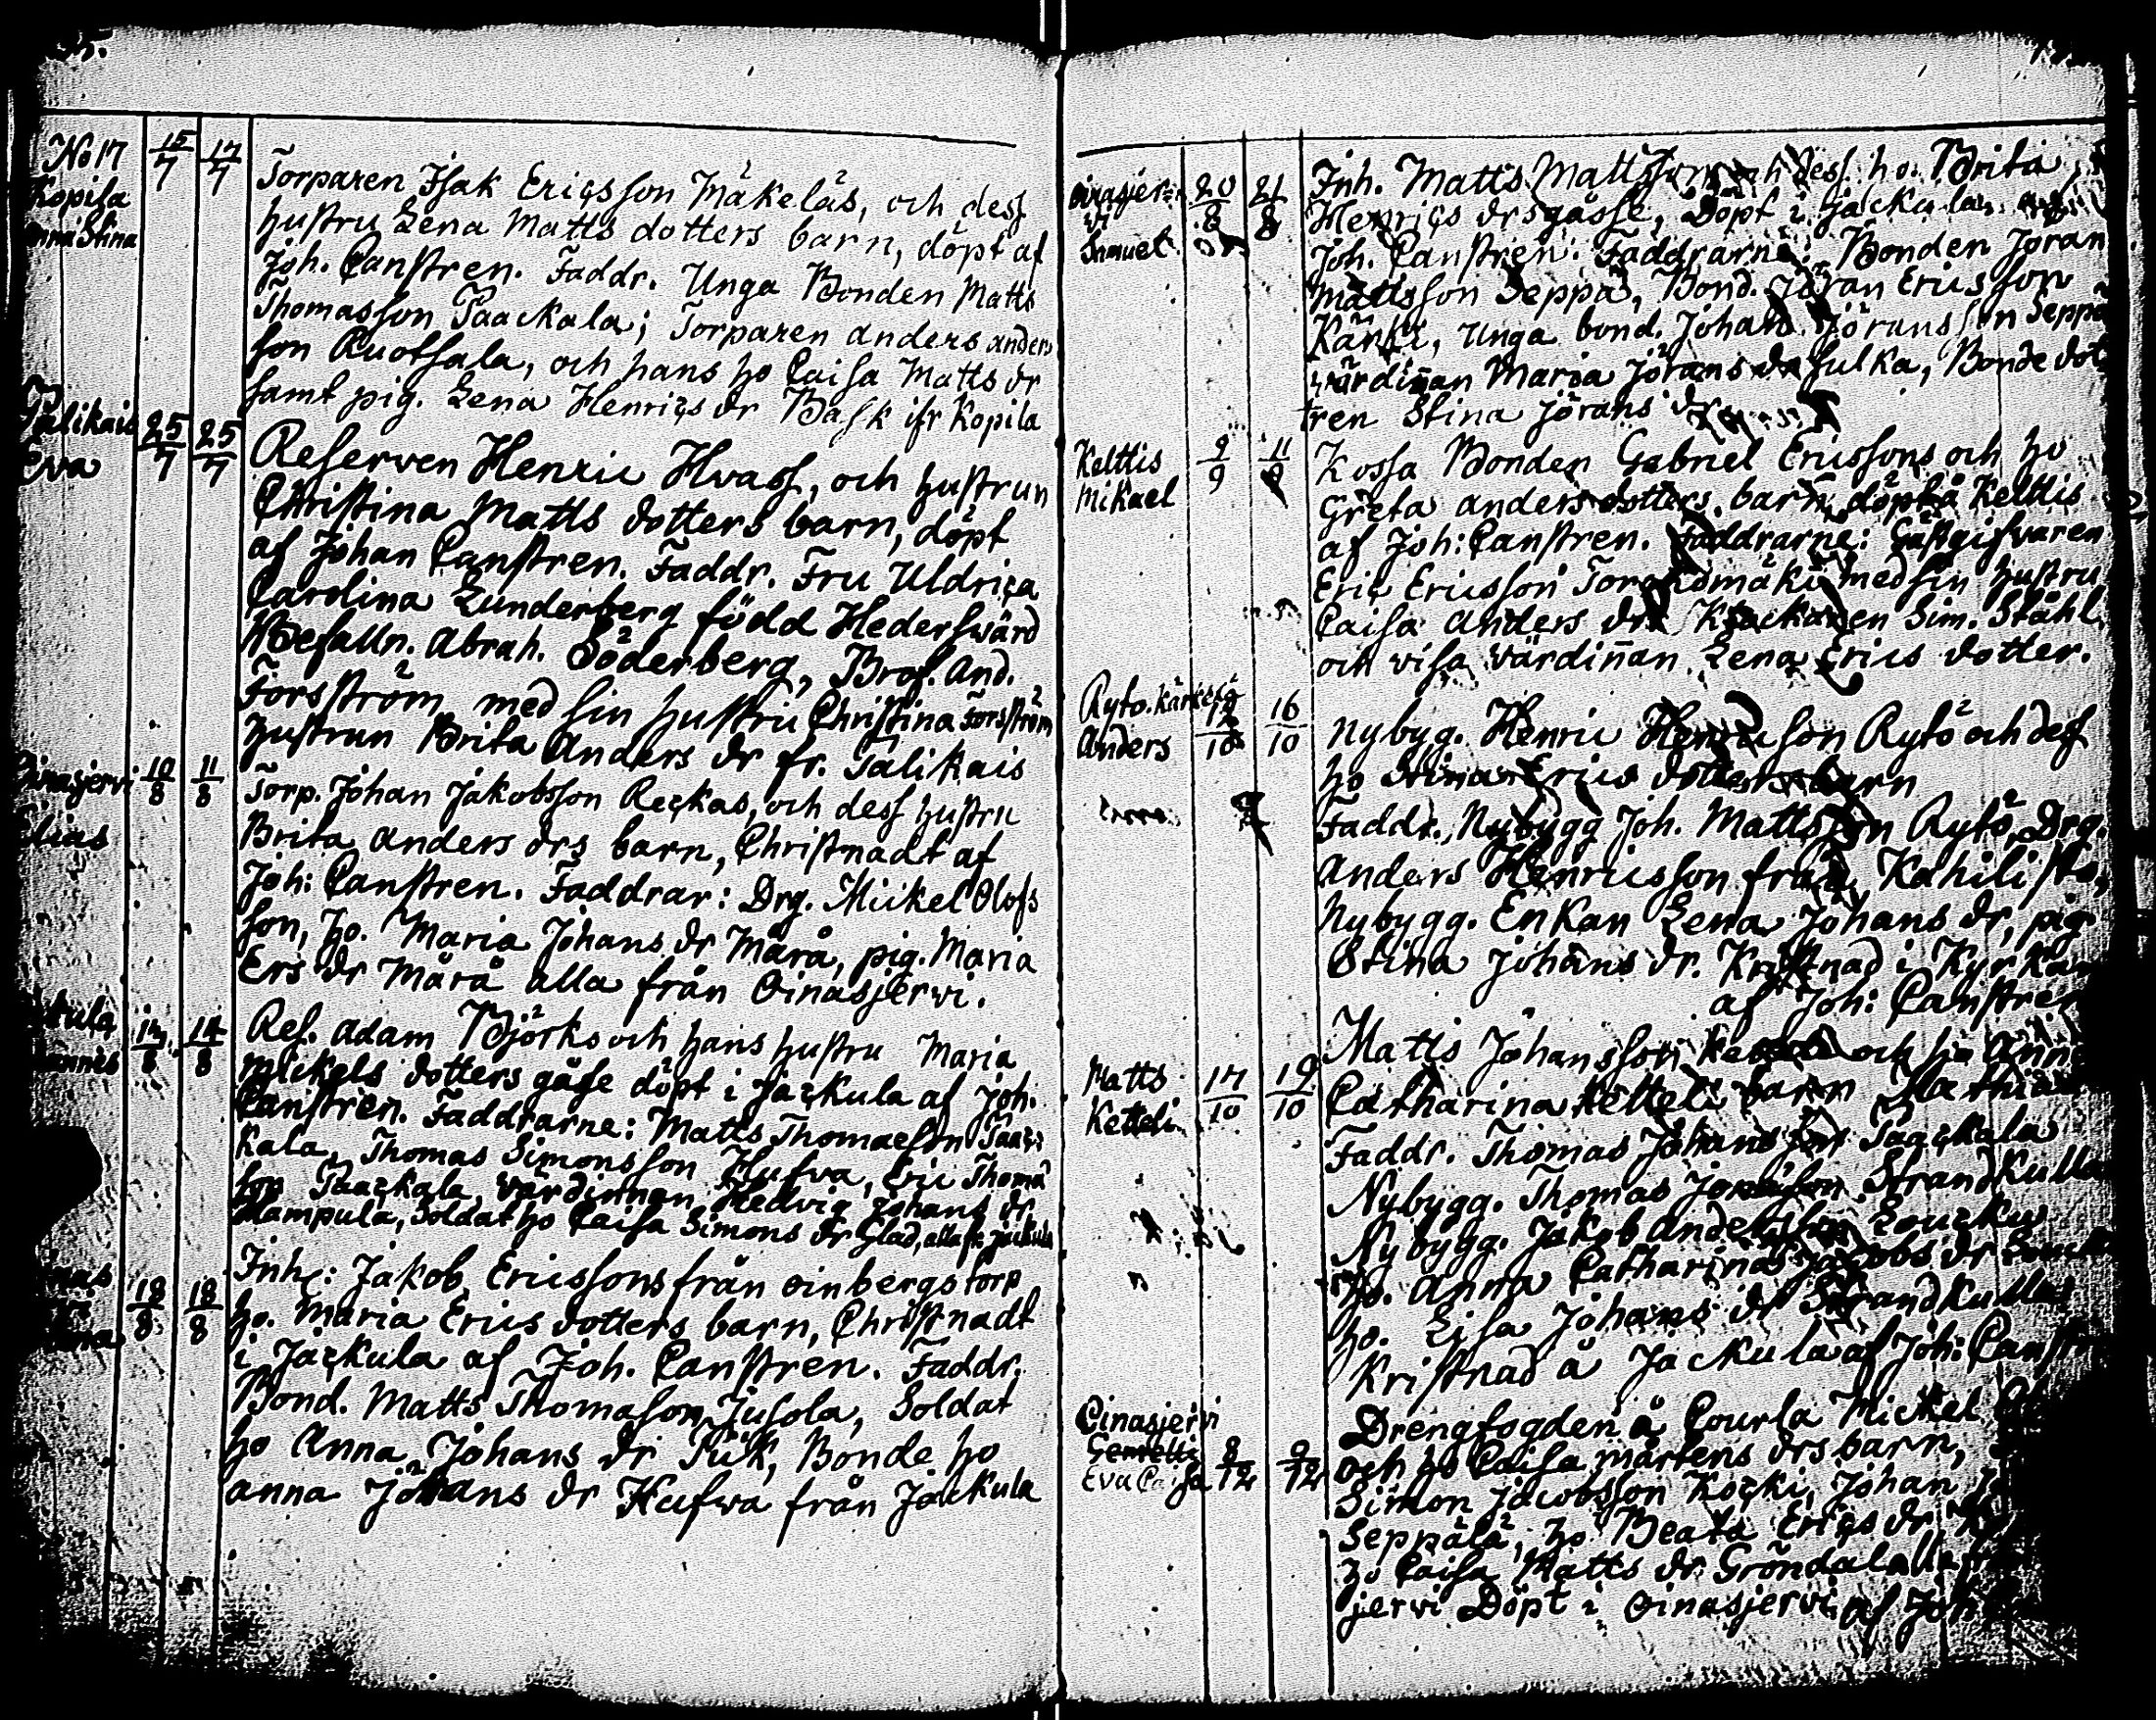 No 17
Kopila
Stina
15/7 17/7
Torparen Isak Ericsson Mäkeläs, och dess
hustru Lena Matts dotters barn, döpt af
Joh. Canstren. Faddr. Unga Bonden Matts
Thomasson Paackala; Torparen Anders Anders
son Ruotsala, och hans ho Caisa Matts dr
samt pig. Lena Henrics dr Bask ifr Kopila
Talikais
Eva
25/7 25/7
Reserven Henric Hvass, och hustrun
Christina Matts dotters barn, döpt
af Johan Canstren. Faddr. Fru Uldrica
Carolina Lunderberg född Hederswärd
Befalln. Abrah. Söderberg, Brof. And.
Forsström med sin hustru Christina Forsström
hustrun Brita Anders dr fr. Talikais
Oinasjervi
Elias
10/8 11/8
Torp. Johan Jakobsson Reckas, och dess hustru
Brita Anders drs barn, Christnadt af
Joh: Canstren. Faddrar: Drg. Mickel Olofs
son, ho. Maria Johans dr Mårå, pig. Maria
Ers dr Mårå alla från Oinasjerwi.
14/8
Res. Adam Björks och hans hustru Maria
Mickels dotters gåsse döpt i Jackula af Joh.
Canstren. Faddrarne: Matts Thomasson Taac
kala, Thomas Simonsson Hufva, Eric Thoma
son Taackala, värdinnan Hedvig Johans dr
Mampula, Soldat ho Caisa Simons dr Glad, alla fr. Jackula
18/8 18/8
Inh: Jakob Ericssons från Oinbergs torp
ho. Maria Erics dotters barn, Christnadt
i Jackula af Joh. Canstren. Faddr.
Bond. Matts Thomason Jusola, Soldat
ho Anna Johans dr Pük, Bonde ho
Anna Johans dr Hufwa från Jackula
Oinasjer
20/8 21/8
Inh. Matts Mattsson och dess ho. Brita
Henrics drs gåsse, Döpt i Jackula af
Joh. Canstren. Faddrarne: Bonden Jöran
Mattsson Seppä, Bond. Jöran Ericsson
Känki, Unga bond. Johan Jöransson Seppä
värdinnan Maria Jörans dr Sulka, Bonde dot
tren Stina Jörans dr
Kelttis
Mikael
9/9 11/9
Kossa Bonden Gabriel Ericssons och ho
Greta Anders dotters barn, döpt å Kelttis
af Joh: Canstren. Faddrarne: Gästgifvaren
Eric Ericsson med sin hustru
Caisa Anders dr Sim. Ståhl
och visa värdinnan Lena Erics dotter.
Ryto.
Anders
16/10
Nybyg. Henric Henricsson Rytö och dess
ho Stina Erics dotters barn
Faddr. Nybygg Joh. Mattsson Rytö, Drg.
Anders Henricsson från Kahilisto,
Nybygg. Enkan Lena Johans dr, pig.
Stina Johans dr. Kristnad i Kyrkan
af Joh: Canstren
Matts
Ketteli
17/10 19/10
Matts Johansson och ho Anna
Catharina Ketteli barn Mathias
Faddr. Thomas Johans son Taackala
Nybygg. Thomas Strandkulla
Nybygg. Jakob Andersson Loucku
ho. Anna Catharina Jacobs dr
ho. Lisa Johans dr Strandkulla
Kristnad å Jackula af Joh: Canstren
Oinasjervi
Eva Caisa
8/12 9/12
Drengfogden å Courla Mickel
och ho Caisa Mårtens drs barn,
Simon Jacobsson Kocki, Johan
Seppälä, ho Beata Erics dr
ho Caisa Matts dr Gröndal alla fr
jervi Döpt i Oinasjervi af Joh